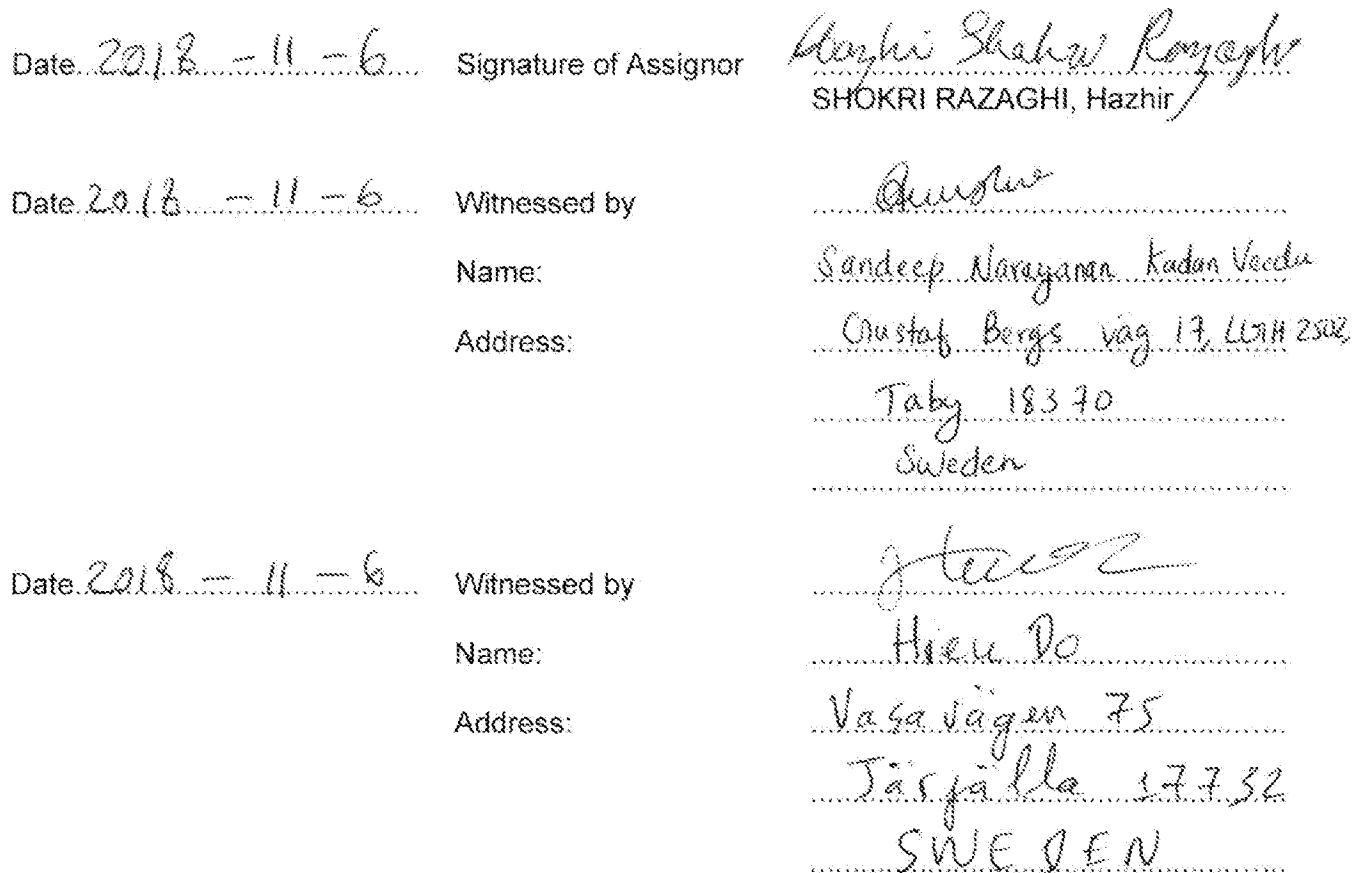 Date 2018 - 11 - 6 Signature of Assignor
SHOKRI RAZAGHI, Hazhir
Date 2018 - 11 - 6 Witnessed by
Name: Sandeep Narayanan Kadan Veedu
Address: Gustaf Bergs väg 17, LGH 2502,
Taby 18370
Sweden
Date 2018 - 11 - 6 Witnessed by
Name: Hieu Do
Address: Vasavägen 75
Järfälla 17732
SWEDEN